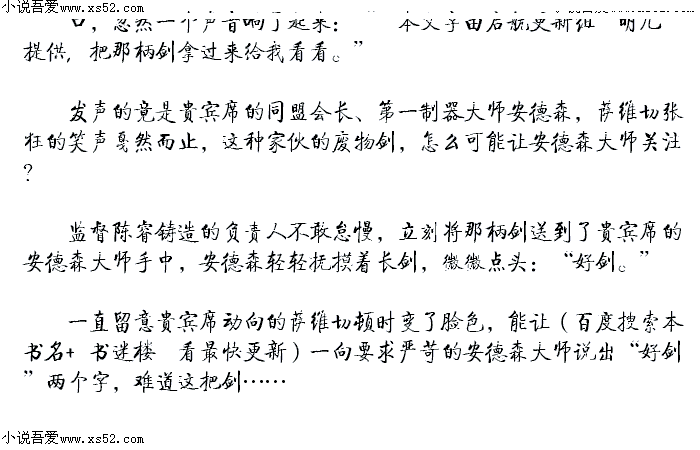 小说吾爱www.xs52.com
小说吾爱www.xs52.com
口，忽然一个声音响了起来：“ 本文字由启航更新组 明儿
提供，把那柄剑拿过来给我看看。”
发声的竟是贵宾席的同盟会长、第一制器大师安德森，萨维切张
狂的笑声戛然而止，这种家伙的废物剑，怎么可能让安德森大师关注
？
监督陈睿铸造的负责人不敢怠慢，立刻将那柄剑送到了贵宾席的
安德森大师手中，安德森轻轻抚摸着长剑，微微点头：“好剑。”
一直留意贵宾席动向的萨维切顿时变了脸色，能让（百度搜索本
书名+ 书迷楼 看最快更新）一向要求严苛的安德森大师说出“好剑
”两个字，难道这把剑……
小说吾爱www.xs52.com
小说吾爱www.xs52.com